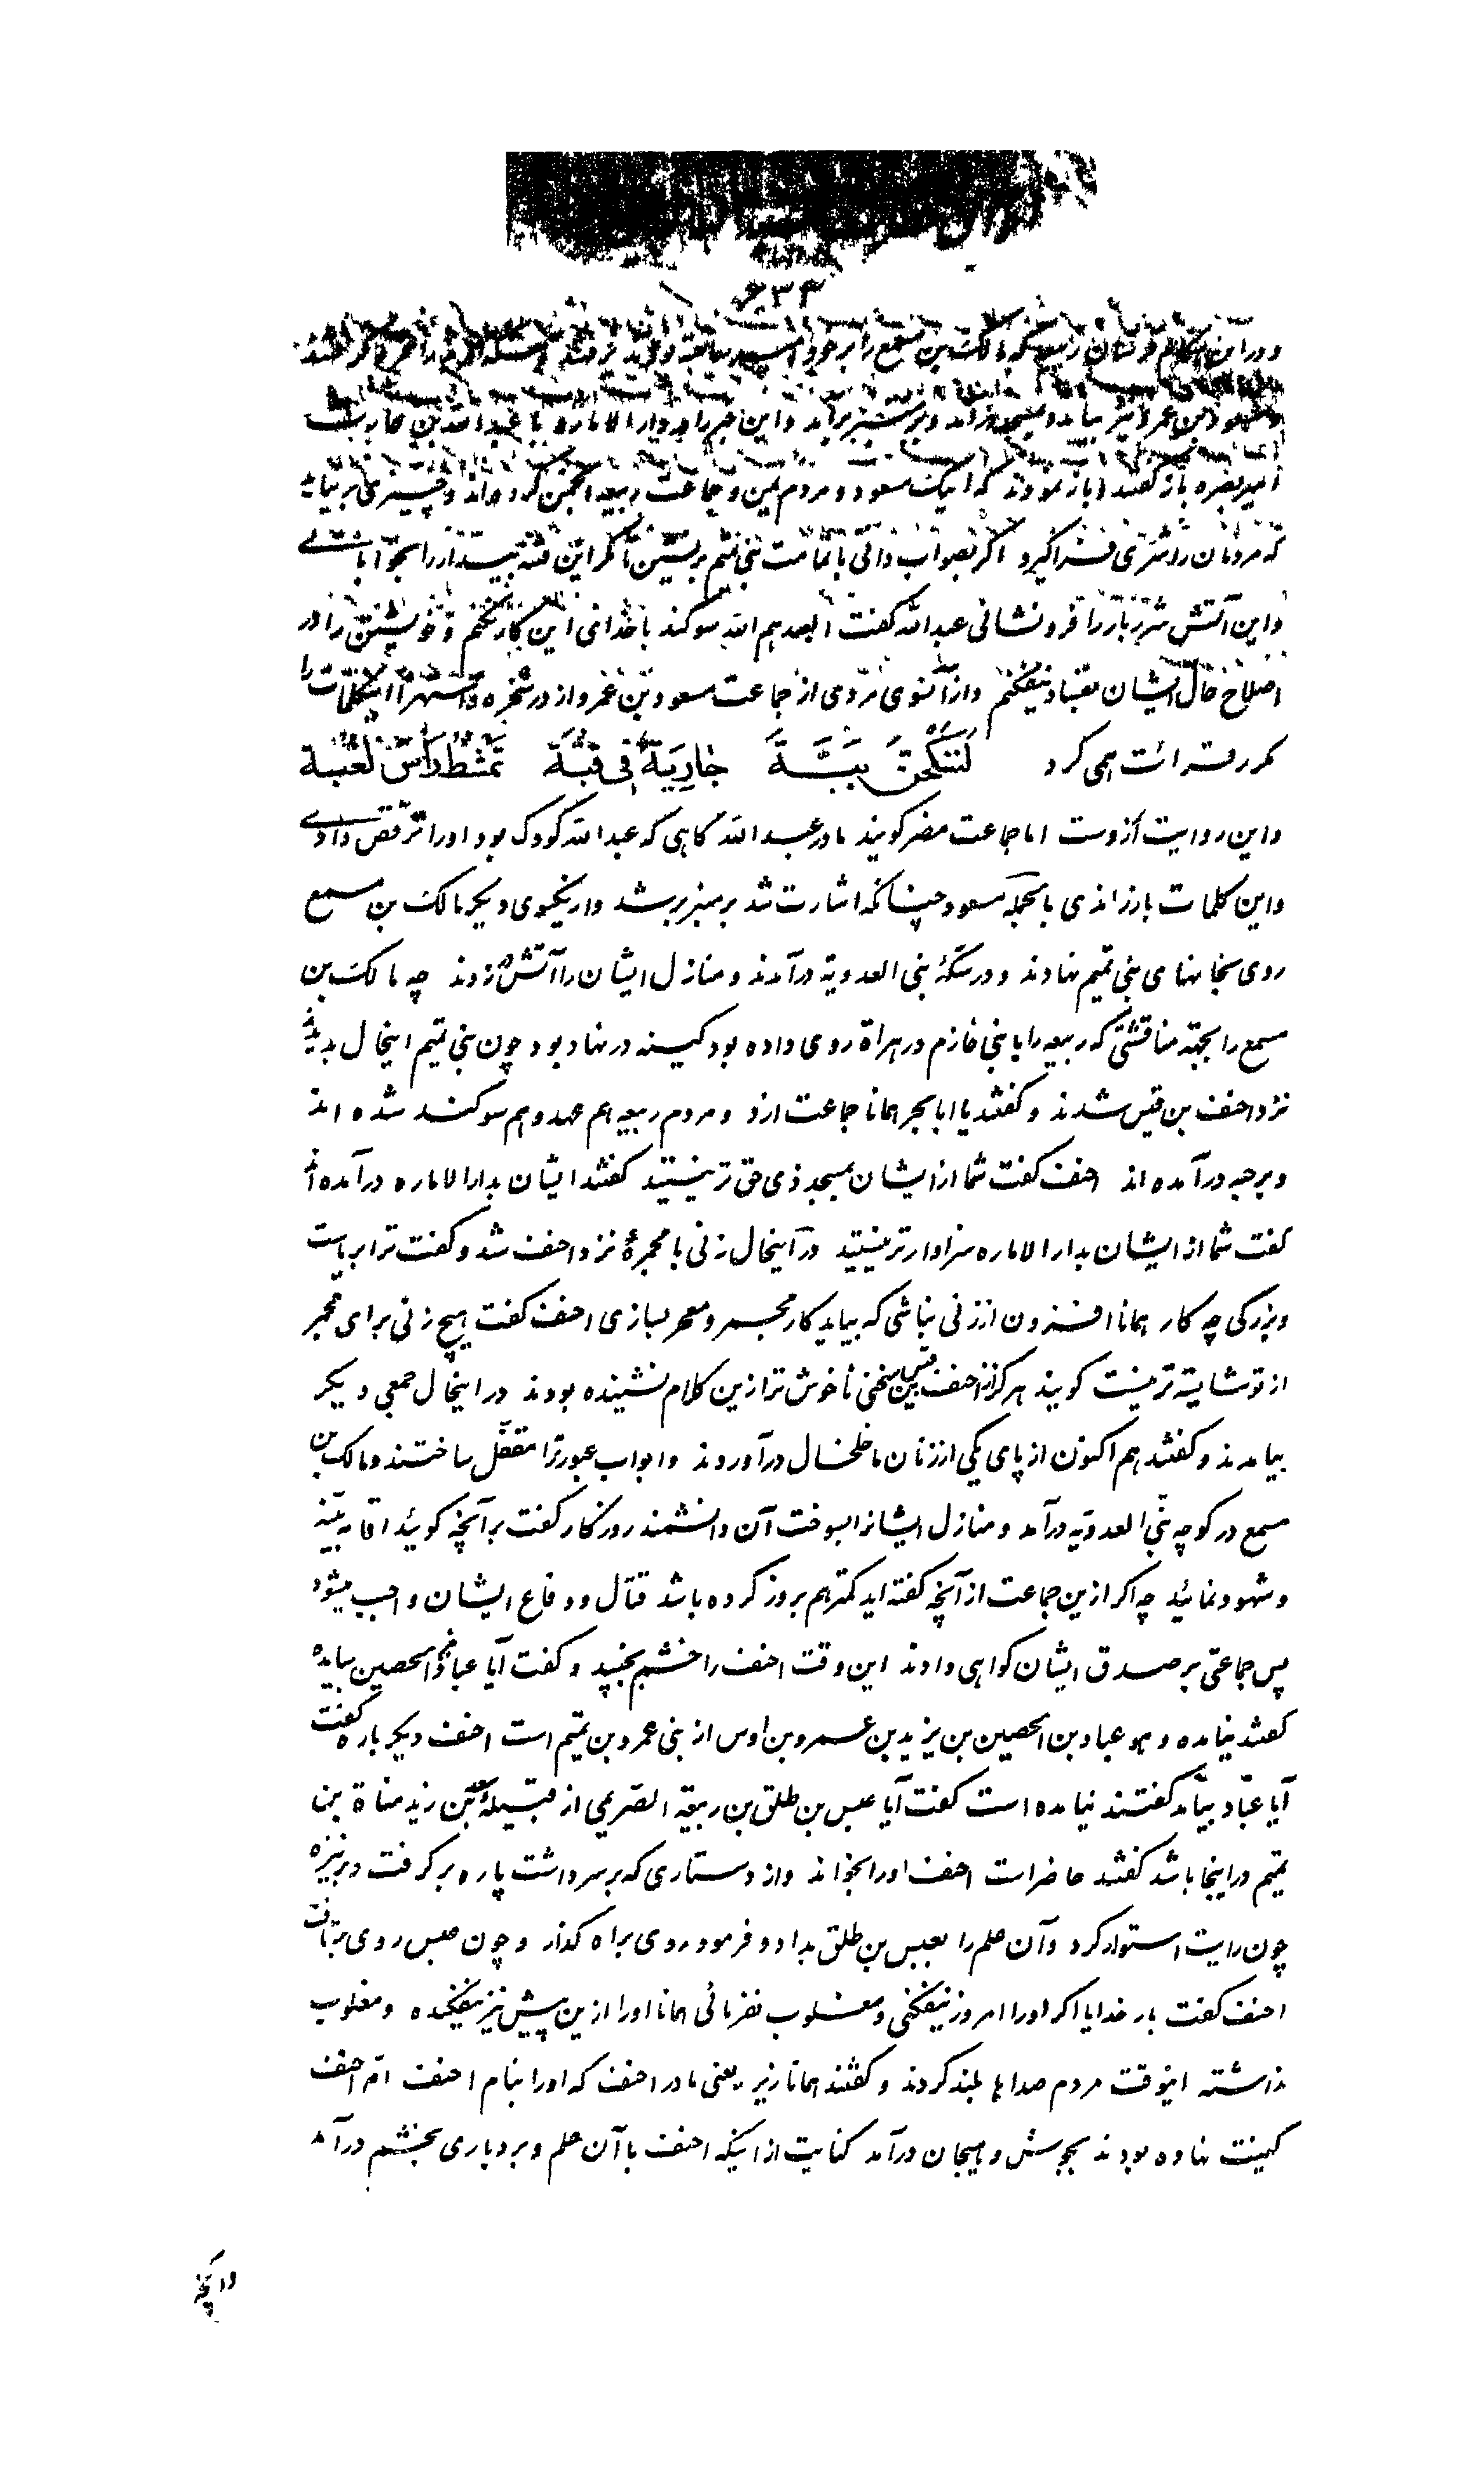 ۶۳۳
و در آن هنگام فرستادن ربیعه که مالک بن مسمع را بر خود
و مسعود بن عمرو نیز بیامد و بمسجد درآمد و بر منبر برآمد و این خبر را در دارالاماره با عبدالله بن حارث ببه
امیر بصره باز گفتند و باز نمودند که اینک مسعود و مردم یمن و جماعت ربیعه انجمن کرده‌اند و چیزی بر نیاید
که مردمان را شری فرا گیرد اگر بصواب دانی با تمامت بنی تمیم بر نشین تا مگر این فتنه بیدار را بخوابانی
و این آتش شرربار را فرو نشانی عبدالله گفت ابعدهم الله سوگند با خدای این کار نکنم و خویشتن را در
اصلاح حال ایشان بفساد نیفکنم و از آنسوی مردی از جماعت مسعود بن عمرو از در سخره و استهزا اینکلمات را
مکرر قرائت همی کرد لَتَنْكِحَنَّ بَبَّةَ جَارِيَةً فِي قُبَّةَ تَمْشُطُ رَأْسَ لُعْبَة
و این روایت أزدست اما جماعت مضر گویند مادر عبدالله گاهی که عبدالله کودک بود او را ترقص دادی
و این کلمات باز راندی بالجمله مسعود چنانکه اشارت شد بر منبر بر شد و از یکسوی دیگر مالک بن مسمع
روی بخانهای بنی تمیم نهادند و در سکهٔ بنی العدویة درآمدند و منازل ایشان را آتش زدند چه مالک بن
مسمع را بجهة مناقشتی که ربیعه را با بنی خازم در هراة روی داده بود کینه در نهاد بود چون بنی تمیم اینحال بدیدند
نزد احنف بن قیس شدند و گفتند یا ابا بحر همانا جماعت ازد و مردم ربیعه هم عهد و هم سوگند شده اند
و برحبه درآمده اند احنف گفت شما از ایشان بمسجد ذی حق تر نیستید گفتند ایشان بدارالاماره درآمده‌اند
گفت شما از ایشان بدارالاماره سزاوارتر نیستید در اینحال زنی با مجمرهٔ نزد احنف شد و گفت ترا بریاست
و بزرگی چه کار همانا افزون از زنی نباشی که بباید کار مجمر و معجر بسازی احنف گفت هیچ زنی برای مجمر
از تو شایسته تر نیست گویند هرگز از احنف قیس سخنی ناخوش تر ازین کلام نشنیده بودند در اینحال جمعی دیگر
بیامدند و گفتند هم اکنون از پای یکی از زنان ما خلخال درآوردند و ابواب عبور ترا مقفل ساختند و مالک بن
مسمع در کوچه بنی العدویه درآمد و منازل ایشانرا بسوخت آن دانشمند روزگار گفت بر آنچه گوئید اقامه بینه
و شهود نمائید چه اگر ازین جماعت از آنچه گفته اید کمتر هم بروز کرده باشد قتال و دفاع ایشان واجب میشود
پس جماعتی بر صدق ایشان گواهی دادند این وقت احنف را خشم بجنبید و گفت آیا عباد بن الحصین بیامده
گفتند نیامده و هو عباد بن الحصین بن یزید بن عمرو بن اوس از بنی عمرو بن تمیم است احنف دیگر باره گفت
آیا عبّاد بیامد گفتند نیامده است گفت آیا عبس بن طلق بن ربیعة الصّریمی از قبیلهٔ سعد بن زید مناة بن
تمیم در اینجا باشد گفتند حاضر است احنف او را بخواند و از دستاری که بر سر داشت پاره برگرفت و بر نیزه
چون رایت استوار کرد و آن علم را بعبس بن طلق بداد و فرمود روی براه گذار و چون عبس روی برتافت
احنف گفت بار خدایا اگر او را امروز نیفکنی و مغلوب نفرمائی همانا او را ازین پیش نیز نیفکنده و مغلوب
نداشته اینوقت مردم صداها بلند کردند و گفتند همانا زبر یعنی مادر احنف که او را بنام احنف امّ احنف
کینت نهاده بودند بجوشش و هیجان درآمد کنایت از اینکه احنف با آن حلم و بردباری بخشم درآمد
و آنچه